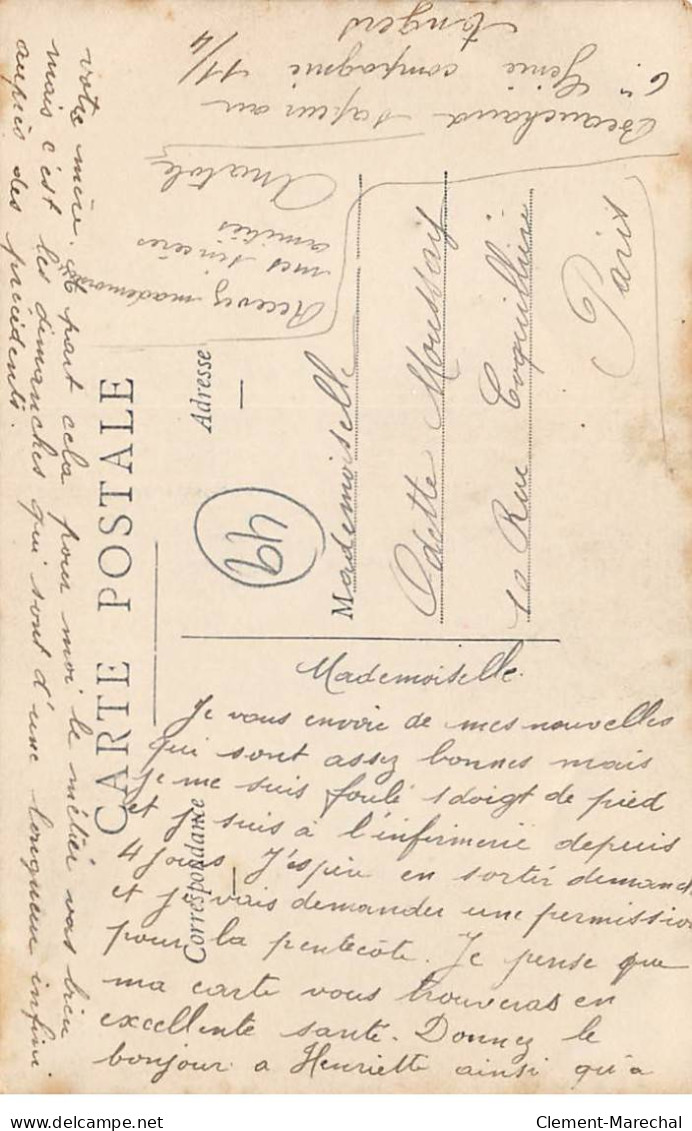 CARTE POSTALE
Correspondance
Adresse
Mademoiselle.
Je vous envoie de mes nouvelles
qui sont assez bonnes mais
je me suis foulé 1 doigt de pied
et je suis à l'infirmerie depuis
4 jours J'espère en sortir demanch
et je vais demander une permission
pour la pentecôte. Je pense que
ma carte vous trouveras en
excellente santé. Donnez le
bonjour a Henriette ainsi qu'a
votre mère. A part cela pour moi le métier vas bien
mais c'est les dimanches qui sont d'une longueur infini
auprès des précédents.
Recevez mademoiselle
mes sincères
amitiés
Anatole
Beauchaud sapeur au
6e Génie compagnie 11/4
Angers
Mademoiselle
Odette
10 Rue Coquillière
Paris
49
Clement-Marechal